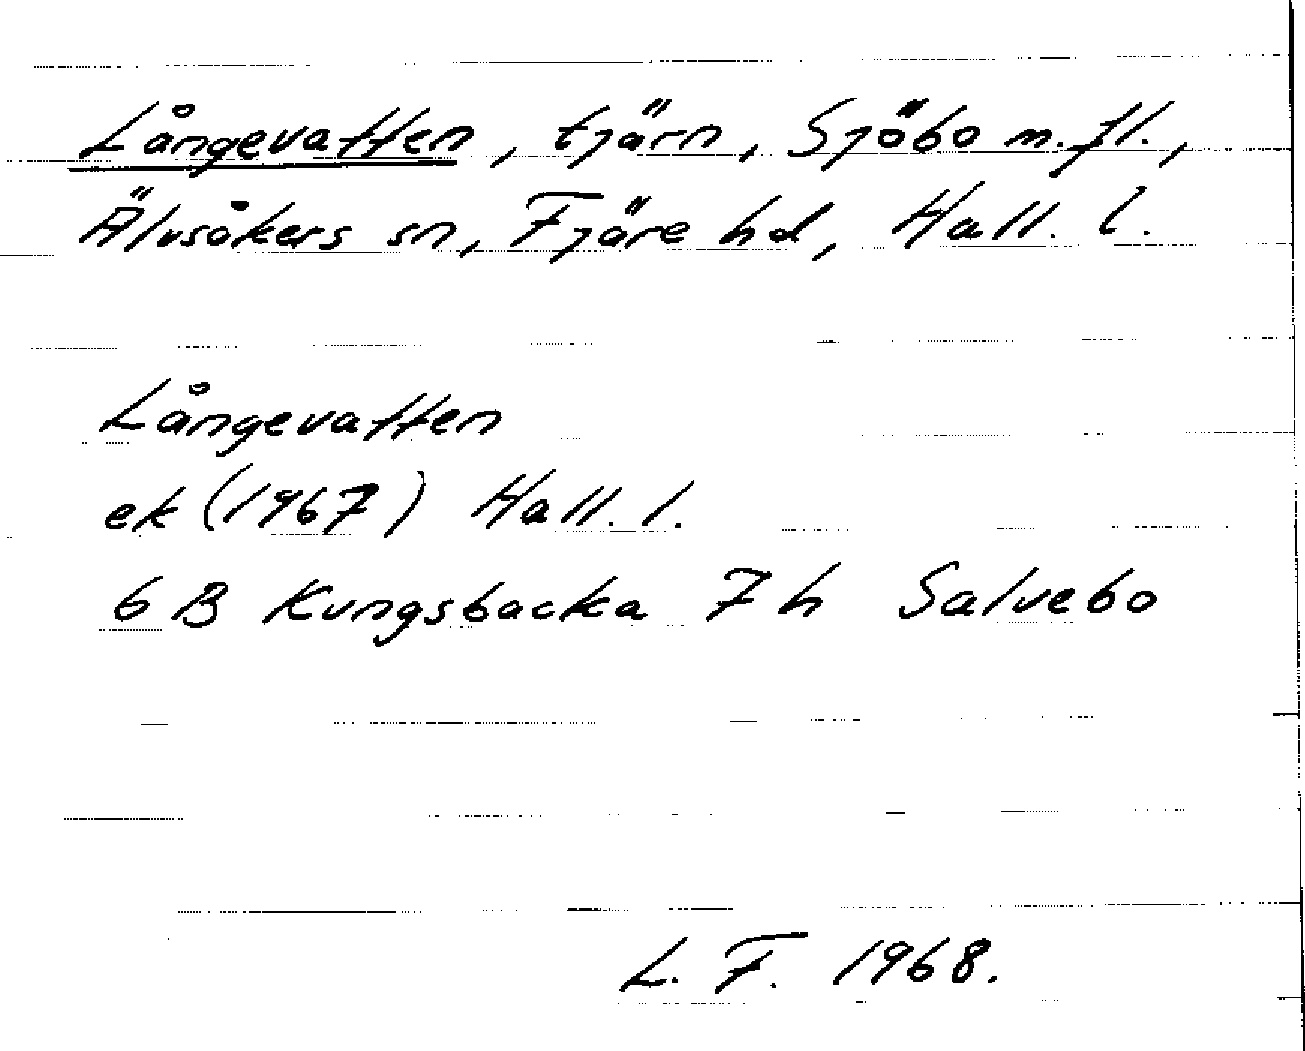 Långevatten, tjärn, Sjöbo m.fl.,
Älvsåkers sn, Fjäre hd, Hall. l.
Långevatten
ek (1967) Hall. l.
6 B Kungsbacka 7 h Salvebo
L. F. 1968.